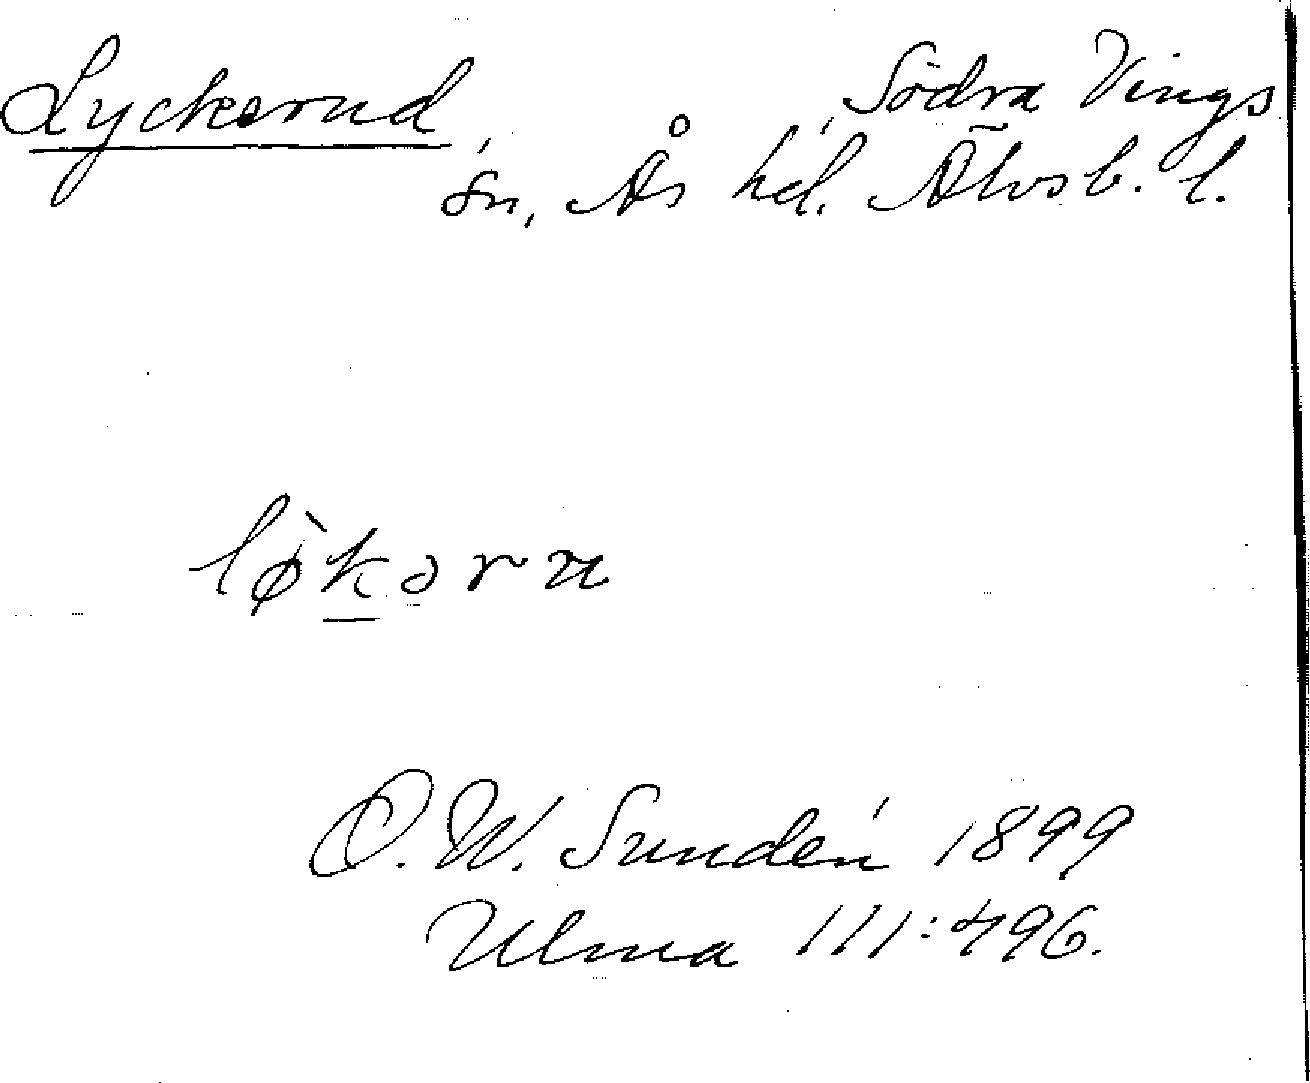 Lyckerud, Södra Vings
sn, Ås hd. Älvsb. l.
lø̀k̲əru
O. W. Sundén 1899
Ulma 111:496.